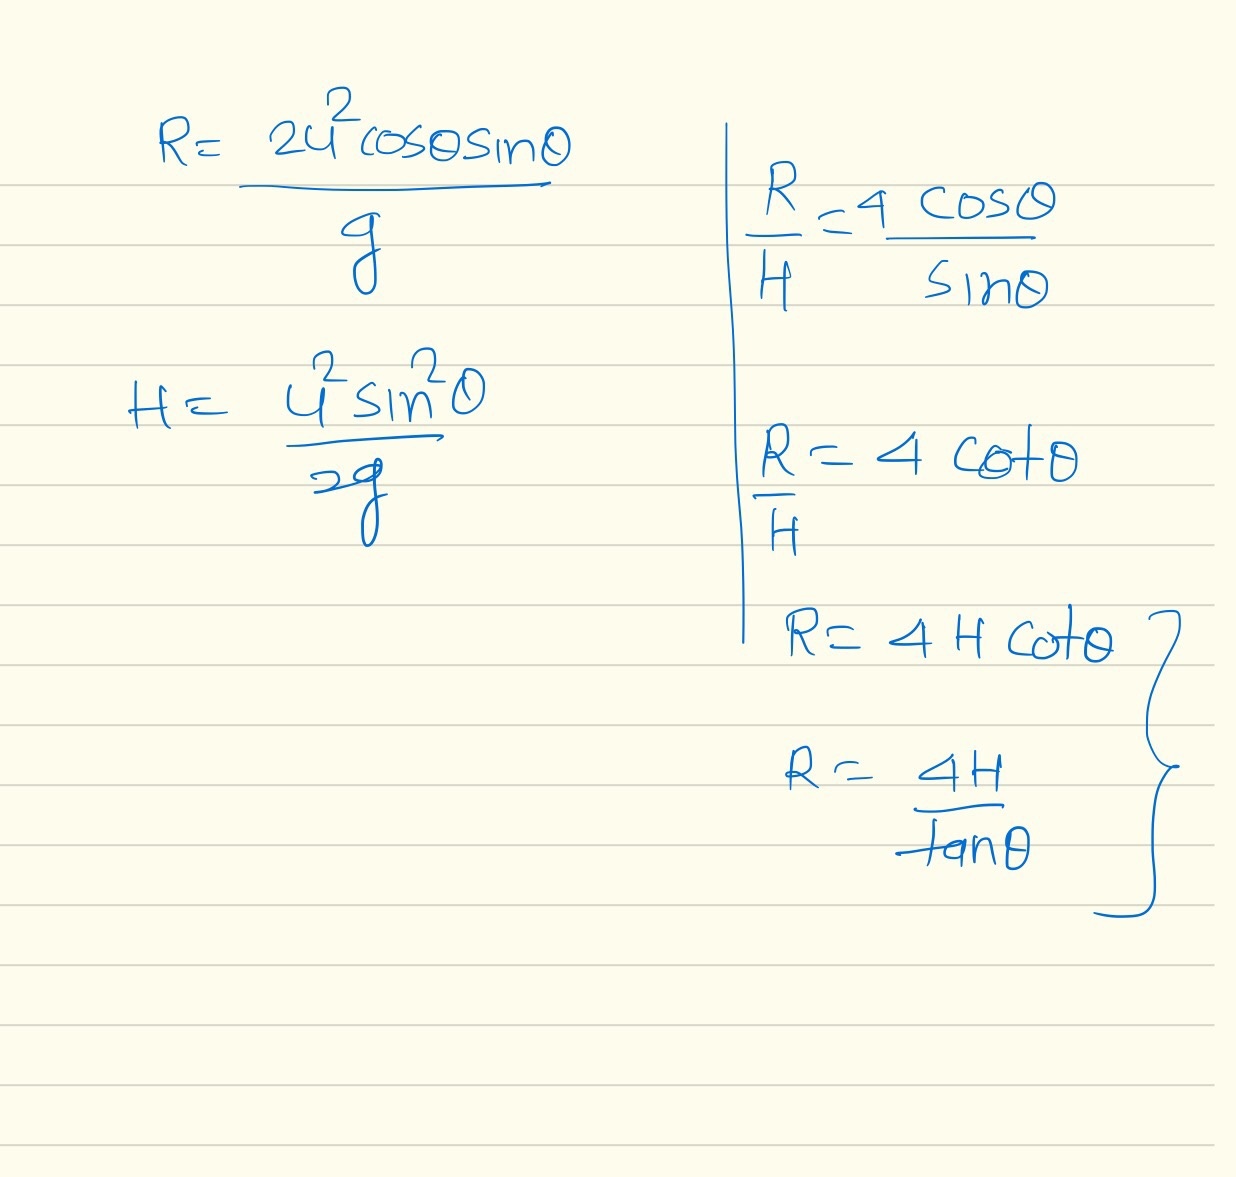 R = 2u²cosθsinθ / g
H = u²sin²θ / 2g
R/H = 4 cosθ / sinθ
R/H = 4 cotθ
R = 4 H cotθ
R = 4H / tanθ